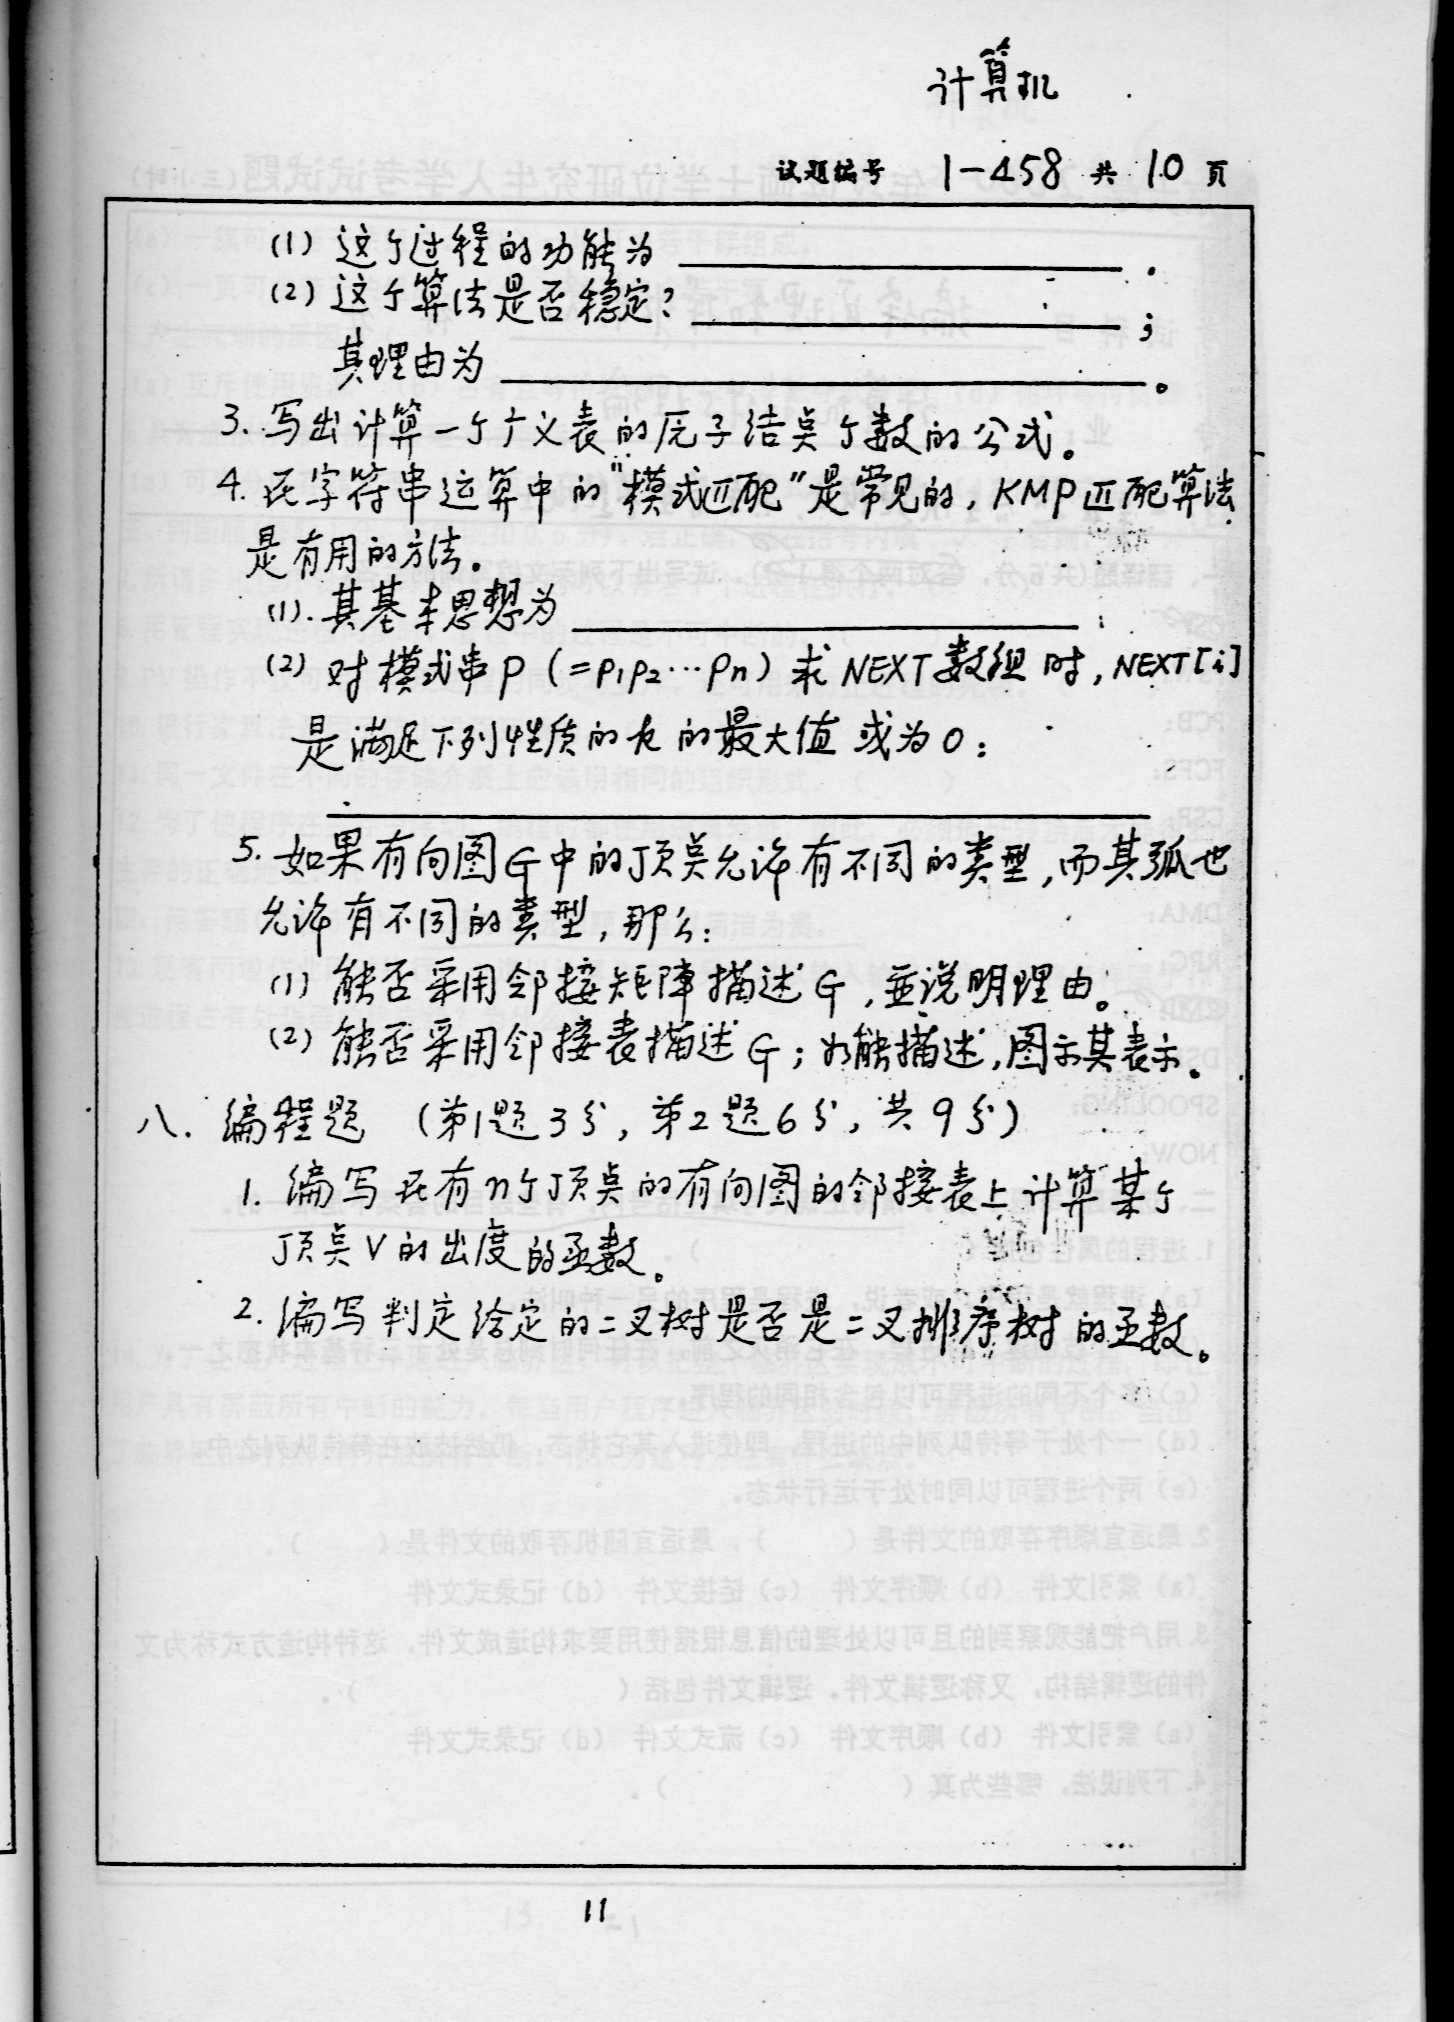 计算机
试题编号 1-458 共 10 页
(1) 这个过程的功能为 ________ .
(2) 这个算法是否稳定? ________ ;
其理由为 ________ 。
3. 写出计算一个广义表的原子结点个数的公式。
4. 在字符串运算中的"模式匹配"是常见的, KMP匹配算法
是有用的方法。
(1). 其基本思想为 ________ ;
(2) 对模式串P (=P1P2…Pn) 求NEXT数组时, NEXT[i]
是满足下列性质的k的最大值或为0:
________
5. 如果有向图G中的顶点允许有不同的类型,而其弧也
允许有不同的类型,那么:
(1) 能否采用邻接矩阵描述G,並说明理由。
(2) 能否采用邻接表描述G;如能描述,图示其表示。
八. 编程题 (第1题3分, 第2题6分, 共9分)
1. 编写在有n个顶点的有向图的邻接表上计算某个
顶点V的出度的函数。
2. 编写判定给定的二叉树是否是二叉排序树的函数。
11